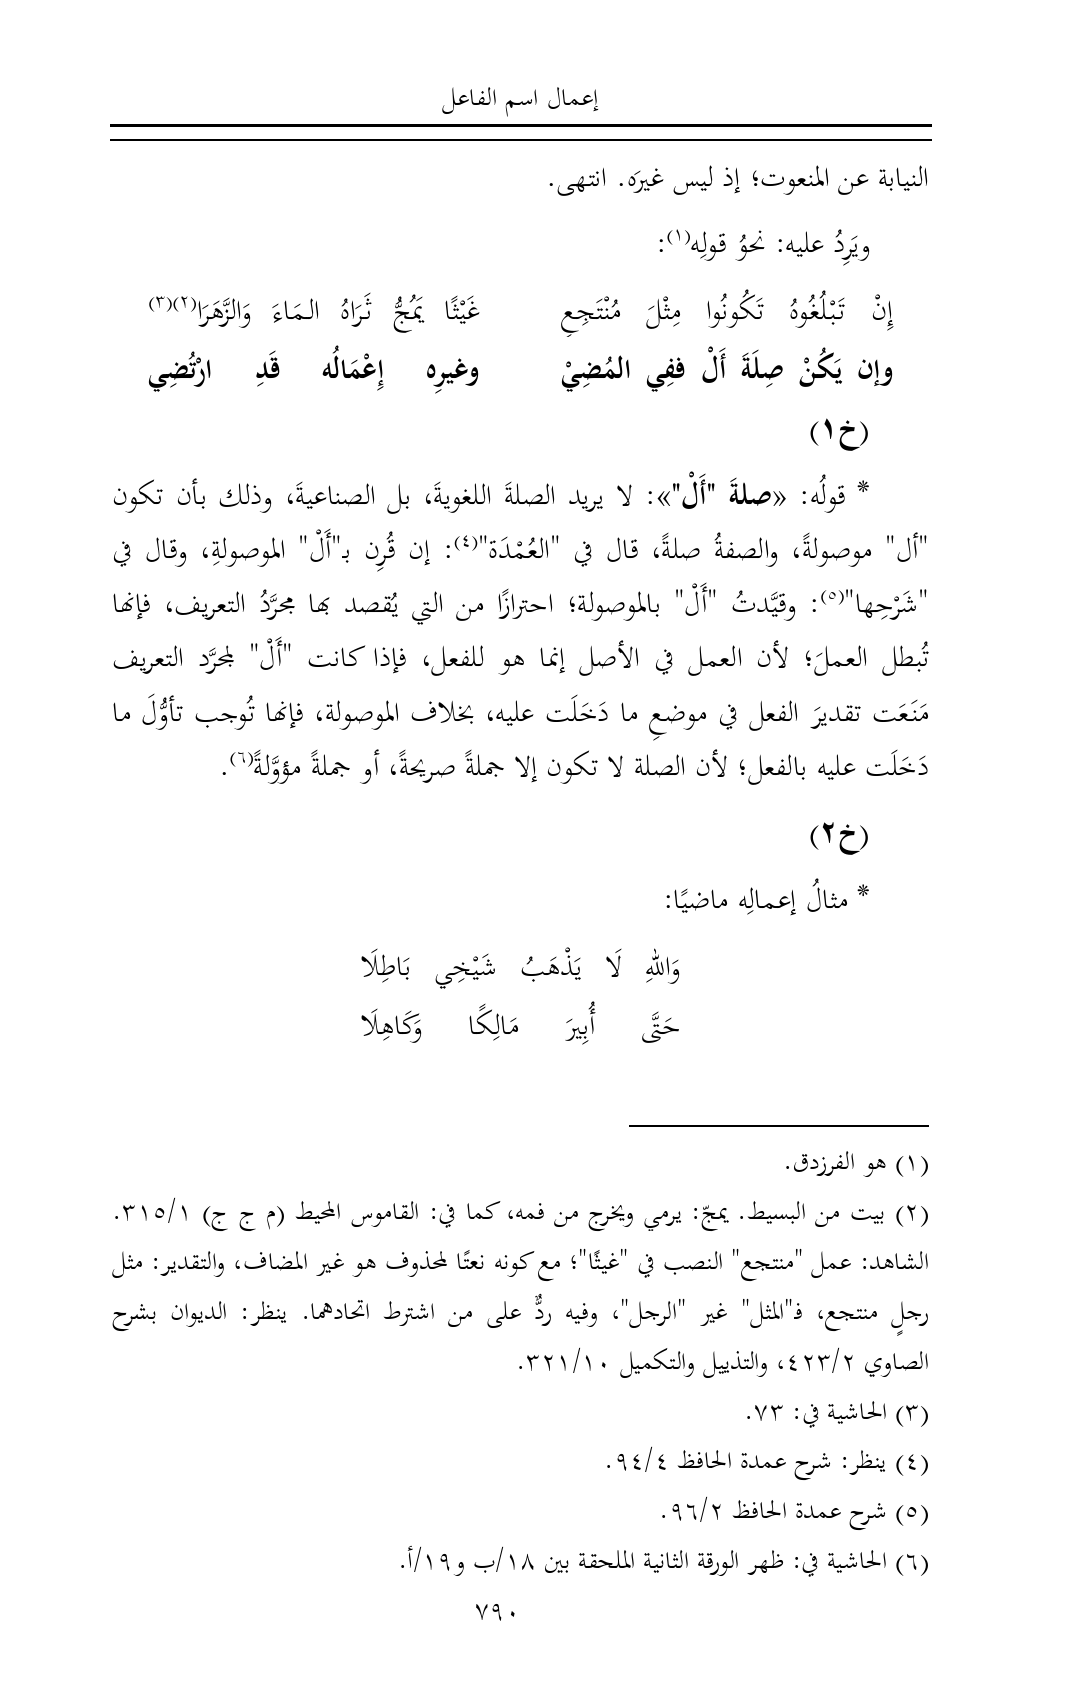 إعمال اسم الفاعل
النيابة عن المنعوت؛ إذ ليس غيرَه. انتهى.
ويَرِدُ عليه: نحوُ قولِه(١):
إِنْ تَبْلُغُوهُ تَكُونُوا مِثْلَ مُنْتَجِعٍ غَيْثًا يَمُجُّ ثَرَاهُ المَاءَ وَالزَّهَرَا(٢)(٣)
وإن يَكُنْ صِلَةَ أَلْ ففِي المُضِيْ وغيرِه إِعْمَالُه قَدِ ارْتُضِي
(خ١)
* قولُه: «صلةَ "أَلْ"»: لا يريد الصلةَ اللغويةَ، بل الصناعيةَ، وذلك بأن تكون
"أل" موصولةً، والصفةُ صلةً، قال في "العُمْدَة"(٤): إن قُرِن بـ"أَلْ" الموصولةِ، وقال في
"شَرْحِها"(٥): وقيَّدتُ "أَلْ" بالموصولة؛ احترازًا من التي يُقصد بها مجرَّدُ التعريف، فإنها
تُبطل العملَ؛ لأن العمل في الأصل إنما هو للفعل، فإذا كانت "أَلْ" لمجرَّد التعريف
مَنَعَت تقديرَ الفعل في موضعِ ما دَخَلَت عليه، بخلاف الموصولة، فإنها تُوجب تأوُّلَ ما
دَخَلَت عليه بالفعل؛ لأن الصلة لا تكون إلا جملةً صريحةً، أو جملةً مؤوَّلةً(٦).
(خ٢)
* مثالُ إعمالِه ماضيًا:
وَاللهِ لَا يَذْهَبُ شَيْخِي بَاطِلَا
حَتَّى أُبِيرَ مَالِكًا وَكَاهِلَا
(١) هو الفرزدق.
(٢) بيت من البسيط. يمجّ: يرمي ويخرج من فمه، كما في: القاموس المحيط (م ج ج) ٣١٥/١.
الشاهد: عمل "منتجع" النصب في "غيثًا"؛ مع كونه نعتًا لمحذوف هو غير المضاف، والتقدير: مثل
رجلٍ منتجع، فـ"المثل" غير "الرجل"، وفيه ردٌّ على من اشترط اتحادهما. ينظر: الديوان بشرح
الصاوي ٤٢٣/٢، والتذييل والتكميل ٣٢١/١٠.
(٣) الحاشية في: ٧٣.
(٤) ينظر: شرح عمدة الحافظ ٩٤/٤.
(٥) شرح عمدة الحافظ ٩٦/٢.
(٦) الحاشية في: ظهر الورقة الثانية الملحقة بين ١٨/ب و١٩/أ.
٧٩٠